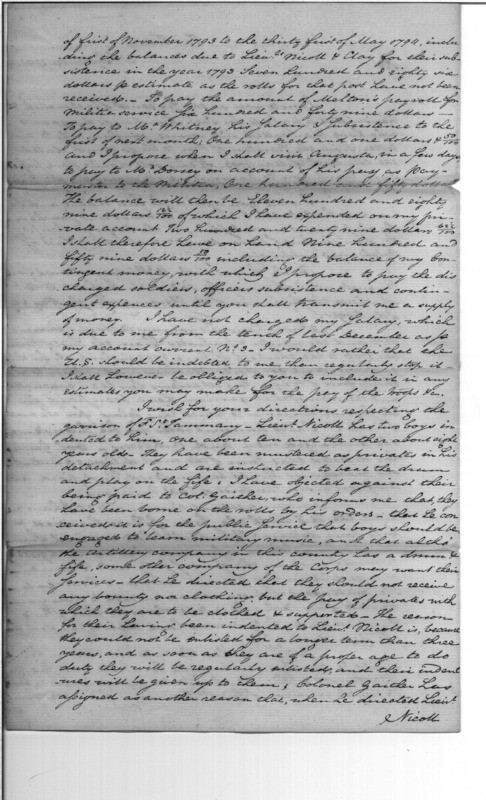 of first of November 1793 to the thirty first of May 1794, inclu-
ding the balances due to Lieuts. Nicoll & Clay for their sub-
sistence in the year 1793 Seven hundred and eighty six
dollars estimate as the rolls for that post have not been
received. – To pay the amount of Melton's payroll for
Militia service Six hundred and forty nine dollars –
To pay to Mr. Whitney his Salary & Subsistence to the
first of next month; One hundred and one dollars &
And I propose when I shall visit Augusta, in a few days
to pay to Mr. Dorsey on account of his pay as Pay-
master to the Militia, One hundred and fifty dollars
The balance will then be Eleven hundred and eighty
nine dollars of which I have expended on my pri-
vate account Two hundred and twenty nine dollars
I shall therefore have on hand Nine hundred and
fifty nine dollars including the balance of my Con-
tingent money, with which I propose to pay the dis
charged soldiers, officers subsistence and contin-
gent expences until you shall transmit me a supply
of money. I have not charged my Salary, which
is due to me from the tenth of last December as p
my account current No. 3 – I would rather that the
U.S. should be indebted to me than regularly stop it
I shall however be obliged to you to include it in any
estimates you may make for the pay of the troops &c.
I wish for your directions respecting the
garrison of St. Tammany – Lieut. Nicoll has two boys in
dented to him, one about ten and the other about eight
years old – they have been mustered as privates in his
detachment and are instructed to beat the drum
and play on the fife; I have objected against their
being paid to Col. Gaither, who informs me that, they
have been borne on the rolls by his orders – that he con
ceives it is for the public service that boys should be
engaged to learn military music, and that altho'
the artillery company in this county has a drum &
fife, some other company of the Corps may want their
services – that he directed that they should not receive
any bounty nor cloathing, but the pay of privates with
which they are to be cloathed & supported – The reason
for their having been indented to Lieut. Nicoll is, because
they could not be enlisted for a longer term than three
years, and as soon as they are of a proper age to do
duty they will be regularly enlisted, and their indent
ures will be given up to them; Colonel Gaither has
assigned as another reason that, when he directed Lieut.
Nicoll